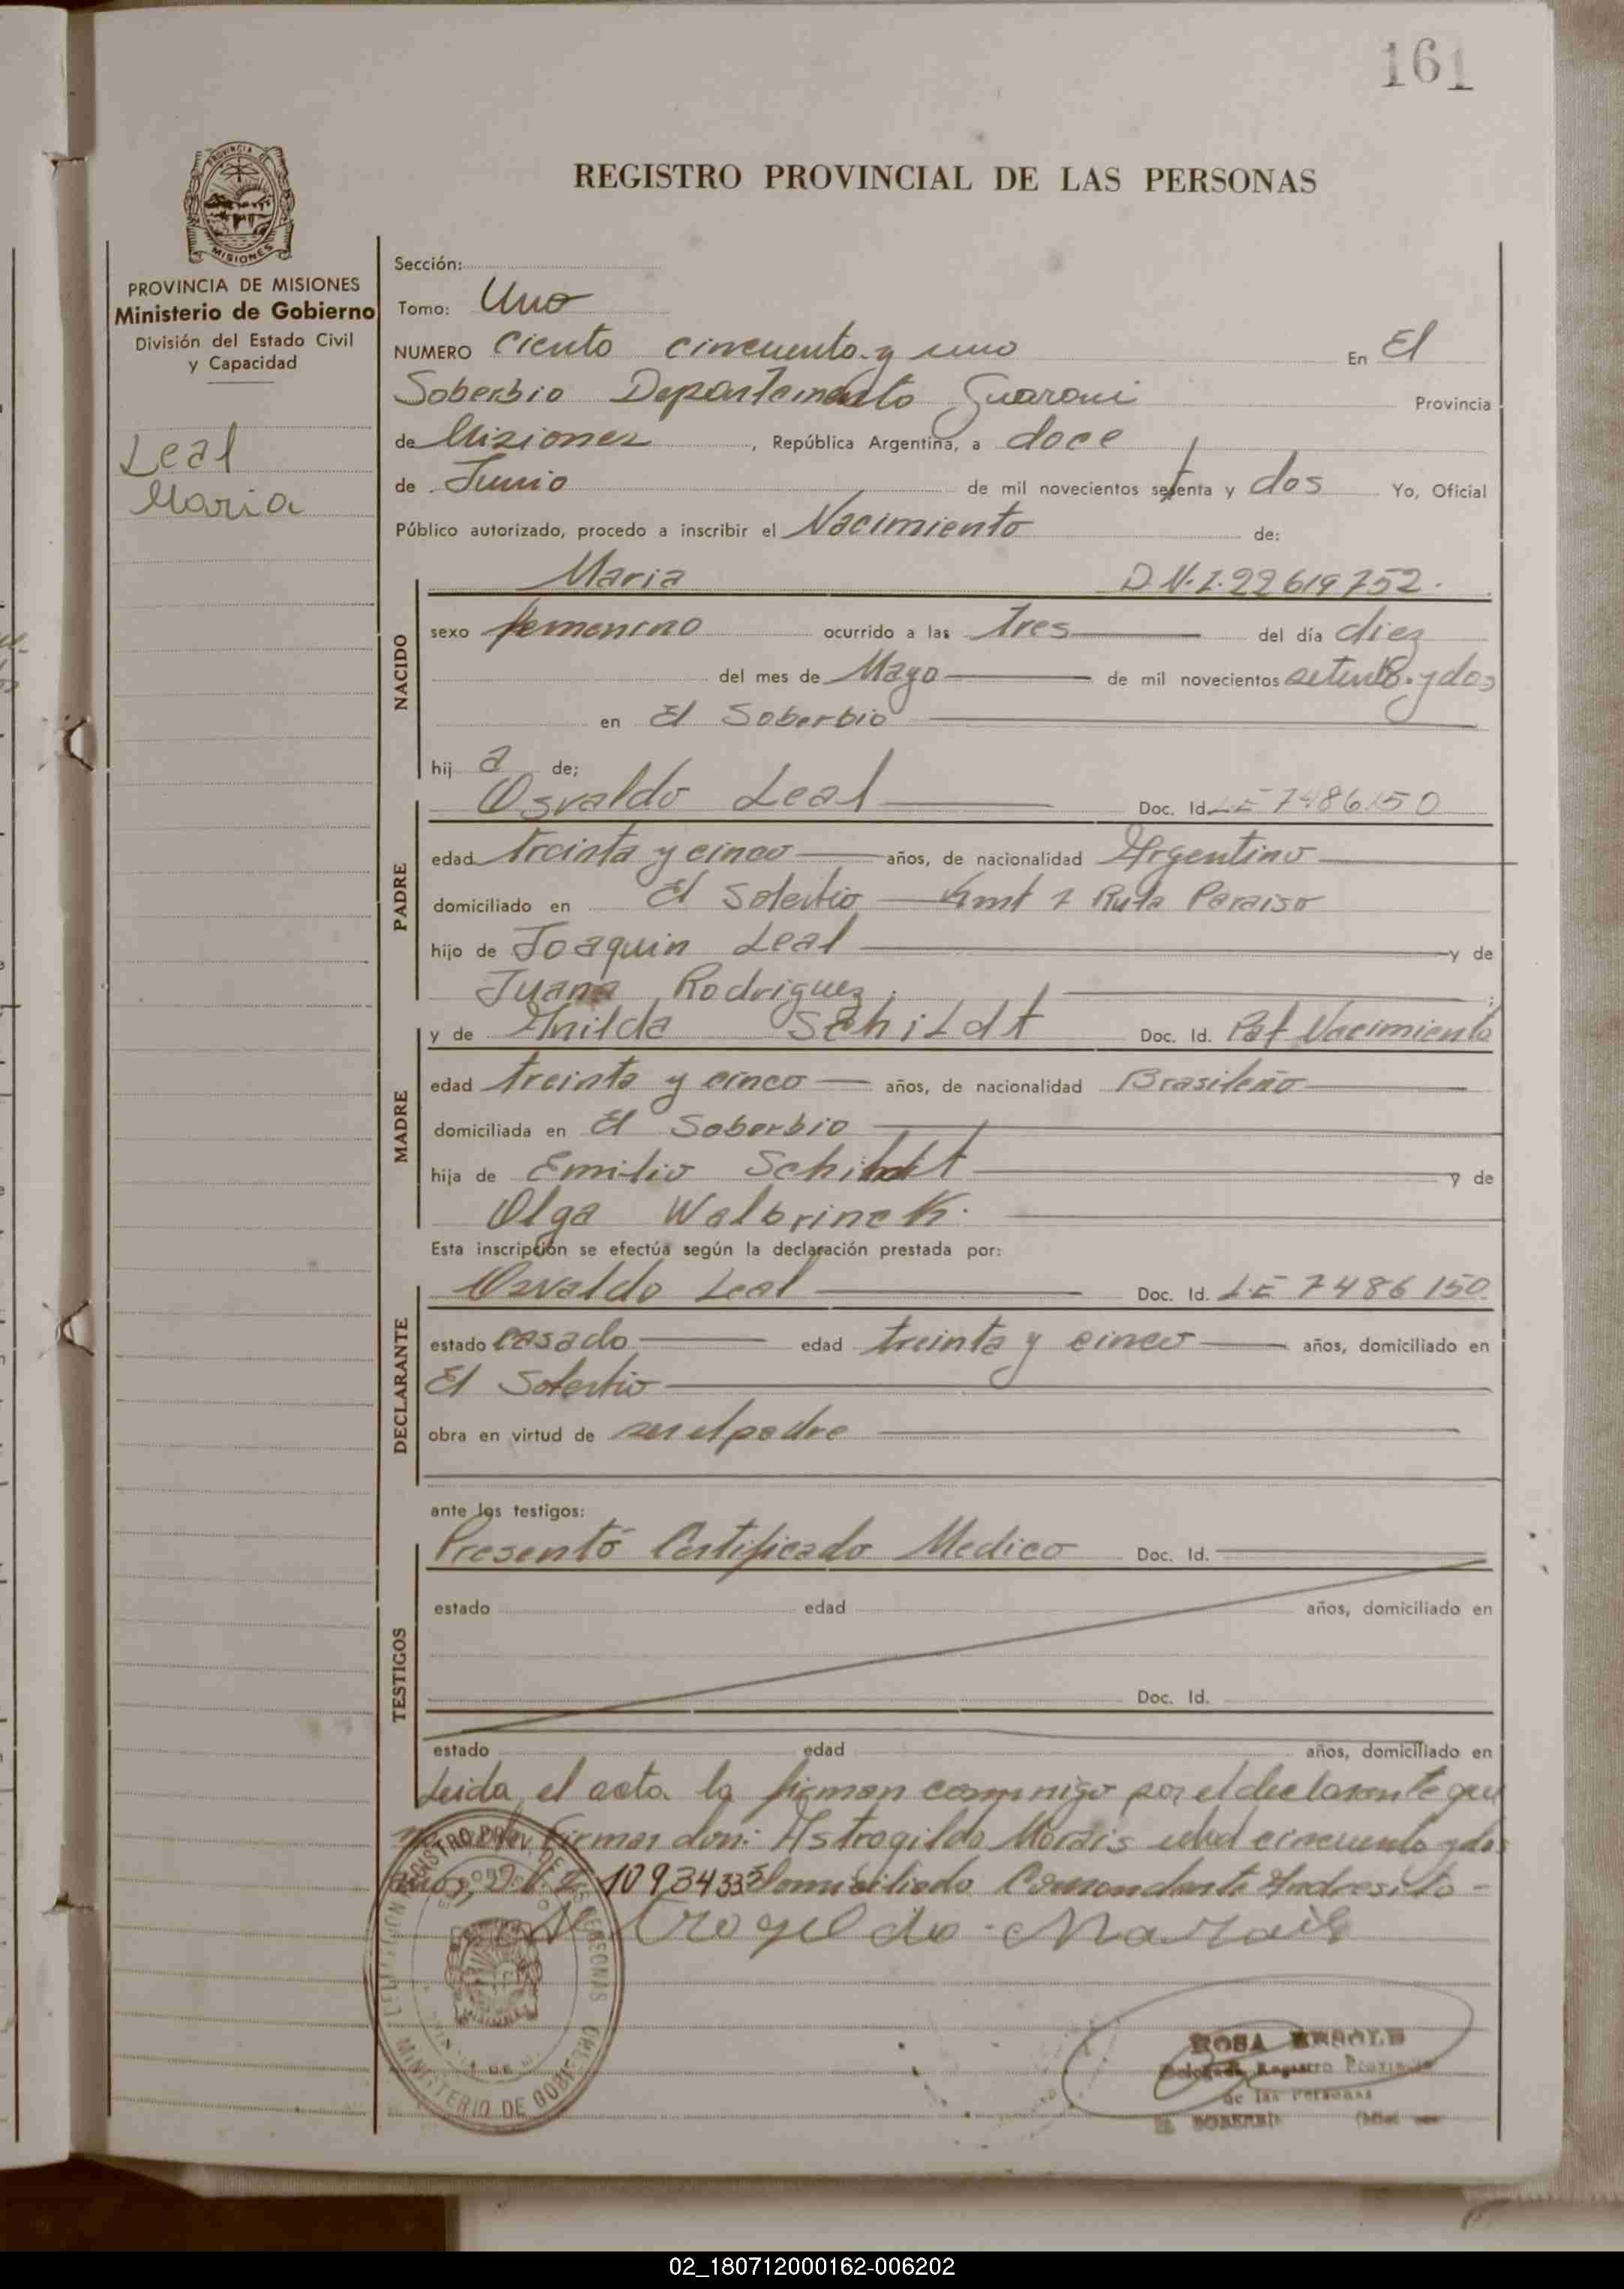 161
REGISTRO PROVINCIAL DE LAS PERSONAS
PROVINCIA DE MISIONES
Ministerio de Gobierno
División del Estado Civil
y Capacidad
Leal
Maria
Sección:
Tomo: Uno
NUMERO Ciento cincuenta y uno En El
Soberbio Departamento Guarani Provincia
de Misiones, República Argentina, a doce
de Junio de mil novecientos setenta y dos Yo, Oficial
Público autorizado, procedo a inscribir el Nacimiento de:
NACIDO
Maria D.N.I. 22619752.
sexo femenino ocurrido a las tres del día diez
del mes de Mayo de mil novecientos setenta y dos
en El Soberbio
hij a de;
PADRE
Osvaldo Leal Doc. Id. LE 7486150
edad treinta y cinco años, de nacionalidad Argentino
domiciliado en El Soberbio Kmt 7 Ruta Paraiso
hijo de Joaquin Leal y de
Juana Rodriguez.
MADRE
y de Anilda Schildt Doc. Id. Pat Nacimiento
edad treinta y cinco años, de nacionalidad Brasileño
domiciliada en El Soberbio
hija de Emilio Schildt y de
Olga Walbrinck.
Esta inscripción se efectúa según la declaración prestada por:
DECLARANTE
Osvaldo Leal Doc. Id. L.E 7486150
estado casado edad treinta y cinco años, domiciliado en
El Soberbio
obra en virtud de ser el padre
ante los testigos:
TESTIGOS
Presentó Certificado Medico Doc. Id.
estado edad años, domiciliado en
Doc. Id.
estado edad años, domiciliado en
Leida el acta la firman conmigo por el declarante que
firmar don: Astrogildo Morais edad cincuenta y dos
años, D.N.I. domiciliado Comandante Andresito -
Astrogildo Marais
REGISTRO PROV. DE LAS PERSONAS
MINISTERIO DE GOBIERNO
ROSA
Delegada Registro Provincial
de las Personas
EL SOBERBIO
02_180712000162-006202